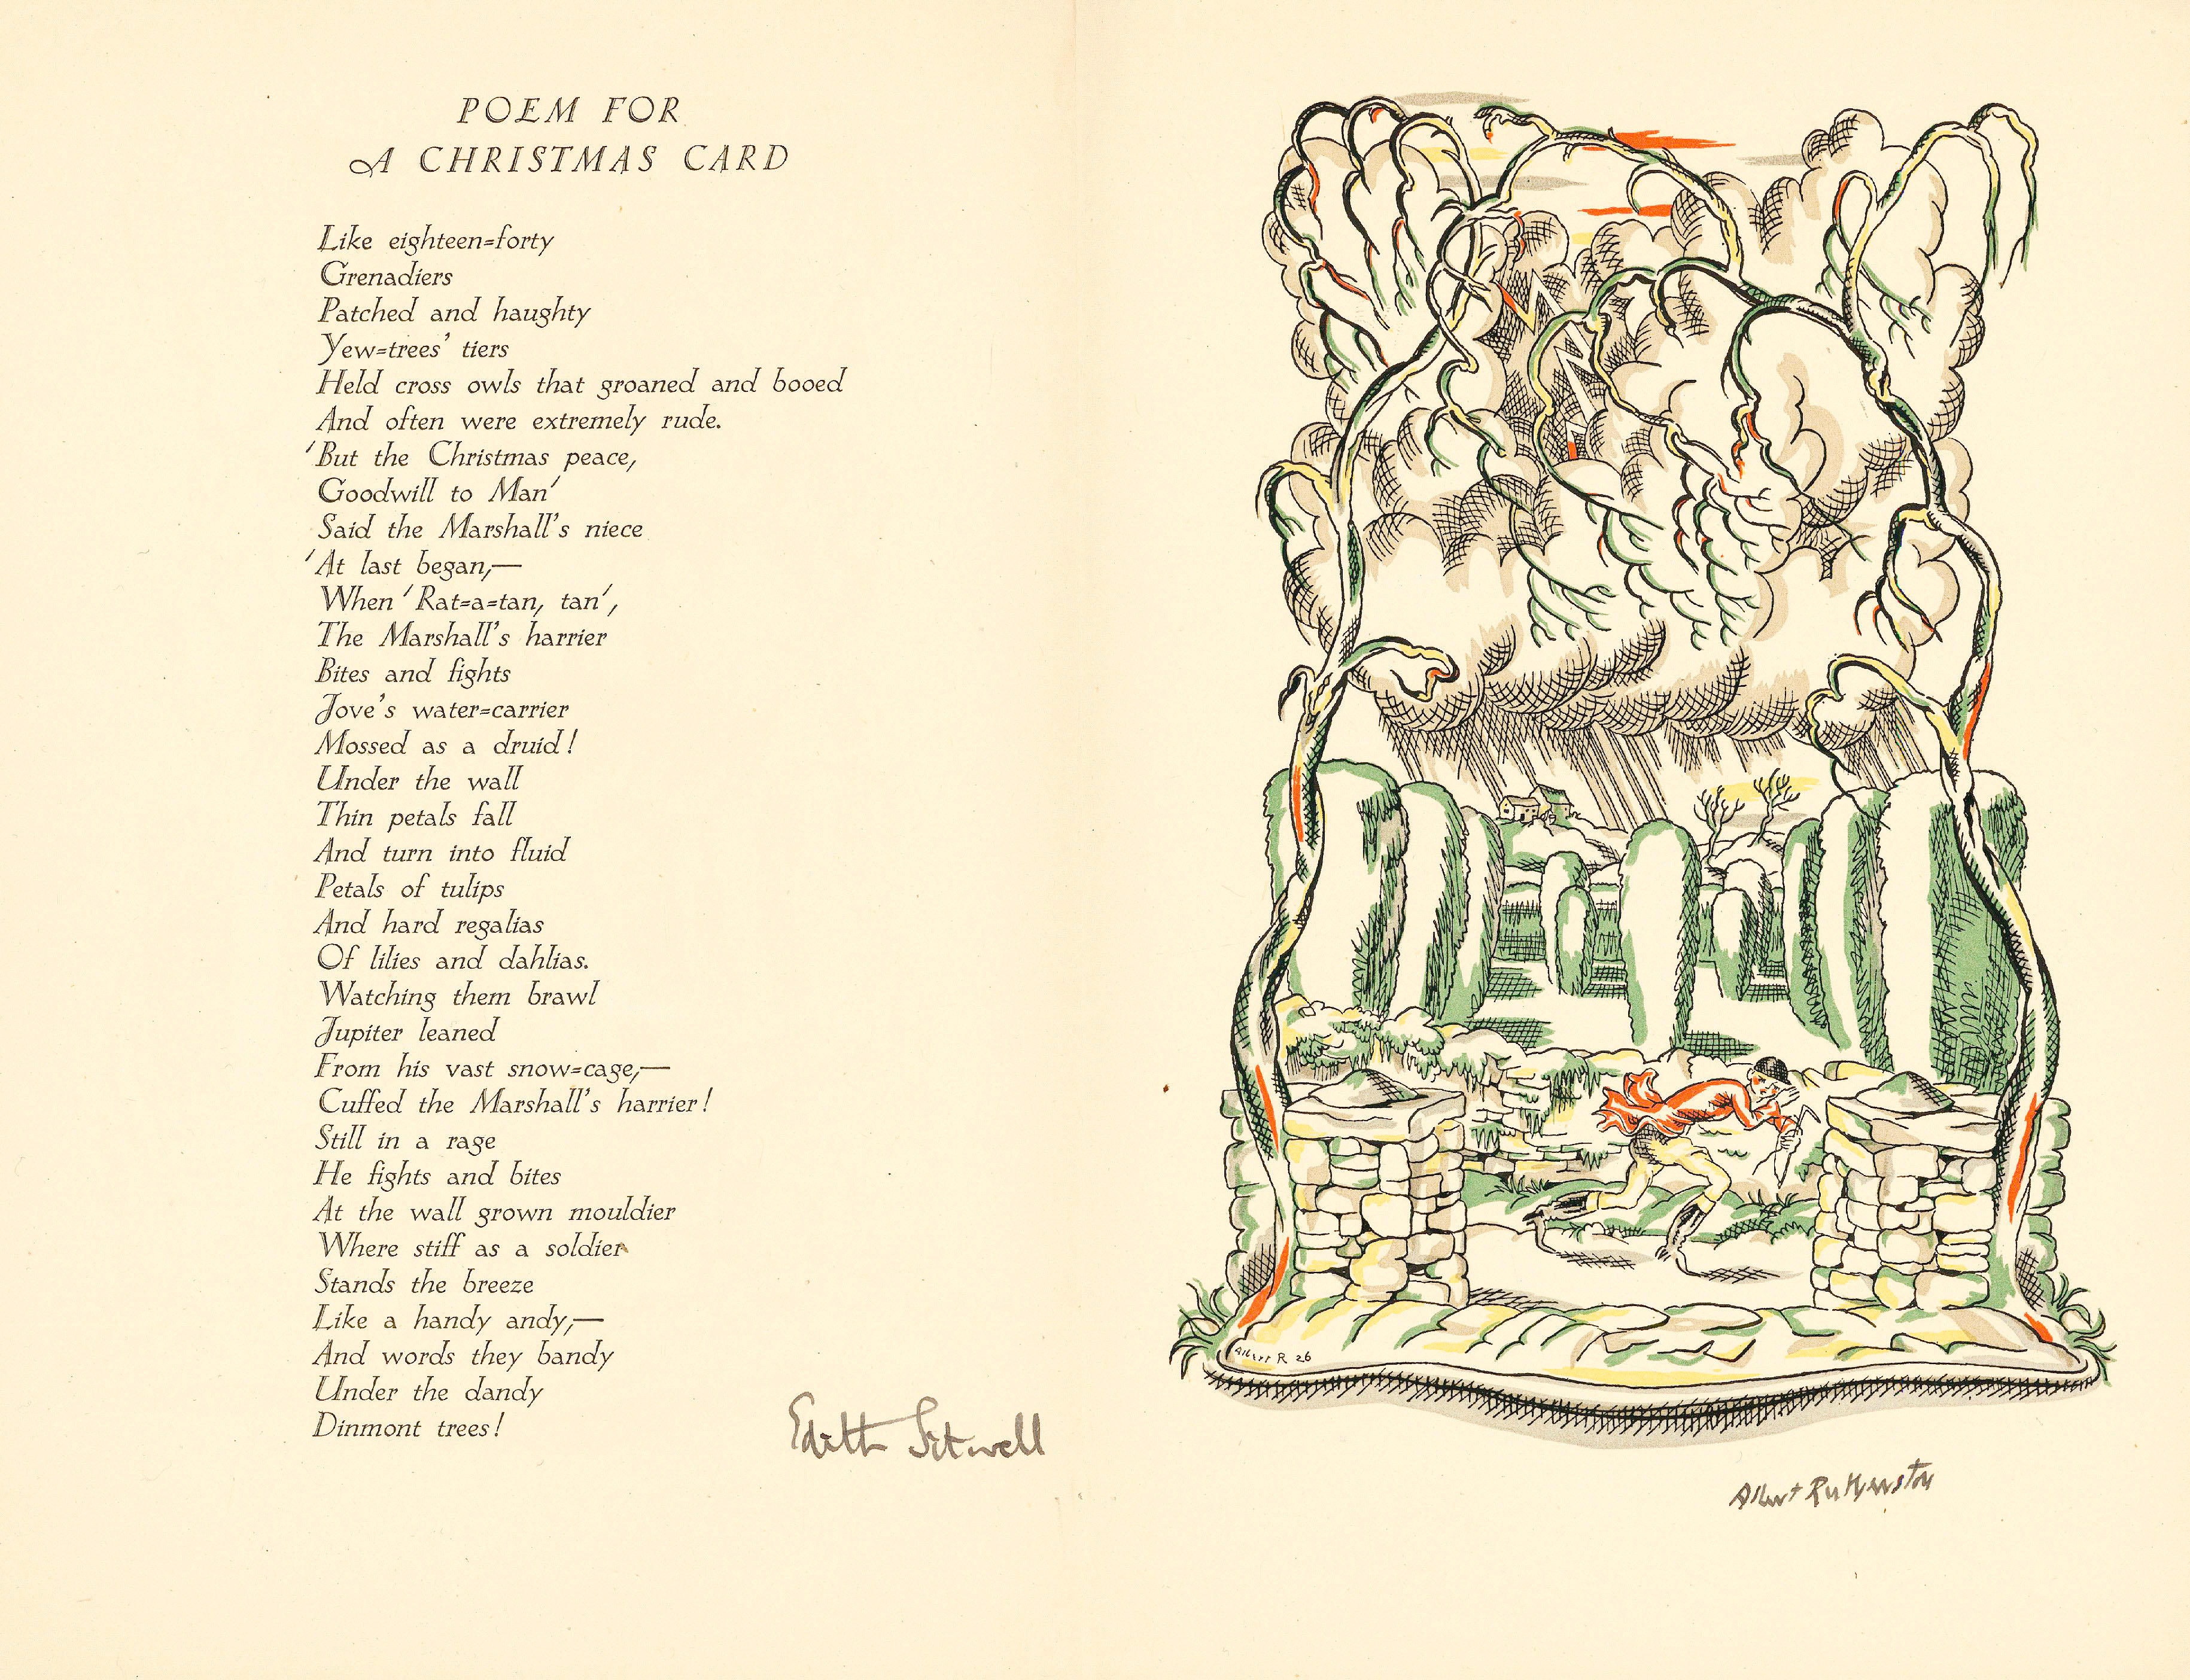 POEM FOR
A CHRISTMAS CARD
Like eighteen=forty
Grenadiers
Patched and haughty
Yew=trees' tiers
Held cross owls that groaned and booed
And often were extremely rude.
'But the Christmas peace,
Goodwill to Man'
Said the Marshall's niece
'At last began,—
When 'Rat=a=tan, tan',
The Marshall's harrier
Bites and fights
Jove's water=carrier
Mossed as a druid!
Under the wall
Thin petals fall
And turn into fluid
Petals of tulips
And hard regalias
Of lilies and dahlias.
Watching them brawl
Jupiter leaned
From his vast snow=cage,—
Cuffed the Marshall's harrier!
Still in a rage
He fights and bites
At the wall grown mouldier
Where stiff as a soldier
Stands the breeze
Like a handy andy,—
And words they bandy
Under the dandy
Dinmont trees!
Edith Sitwell
Albert R 26
Albert Rutherston